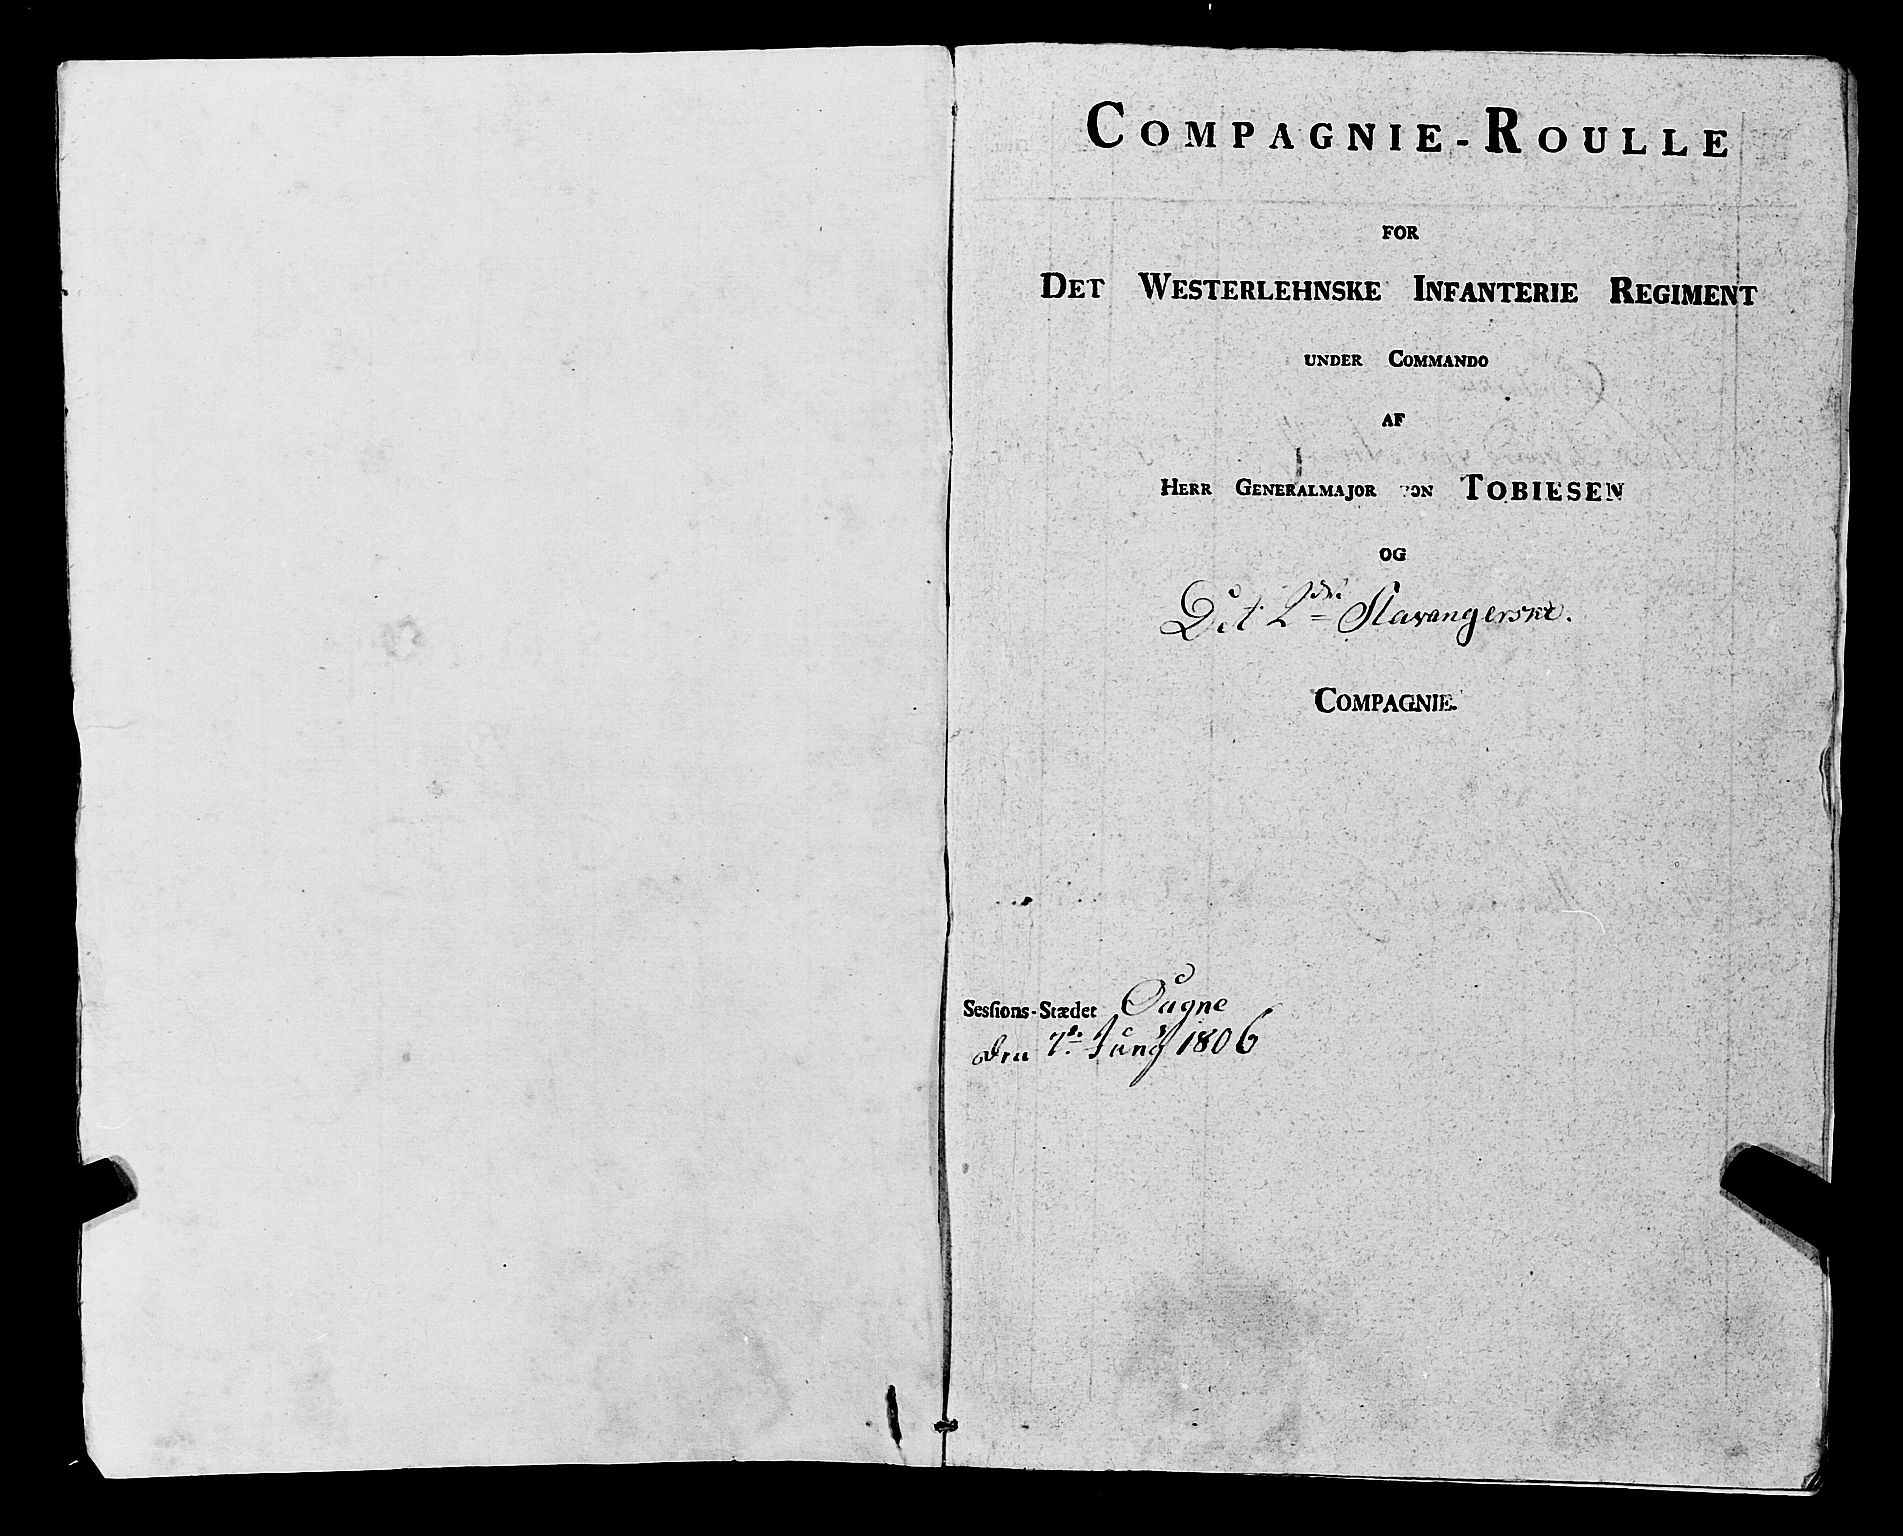 COMPAGNIE-ROULLE
FOR
DET WESTERLEHNSKE INFANTERIE REGIMENT
UNDER COMMANDO
AF
HERR GENERALMAJOR VON TOBIESEN
OG
Det 2de Stavangerske.
COMPAGNIE.
Sesſions-Stædet Sugne
den 7de Junÿ 1806